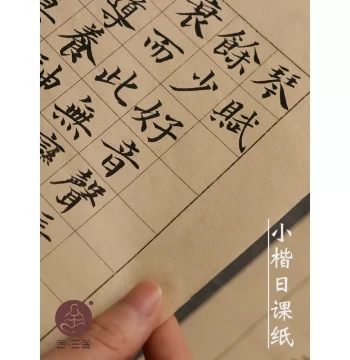 琴賦
餘少好音聲
衰而此無
導養神
小楷日课纸